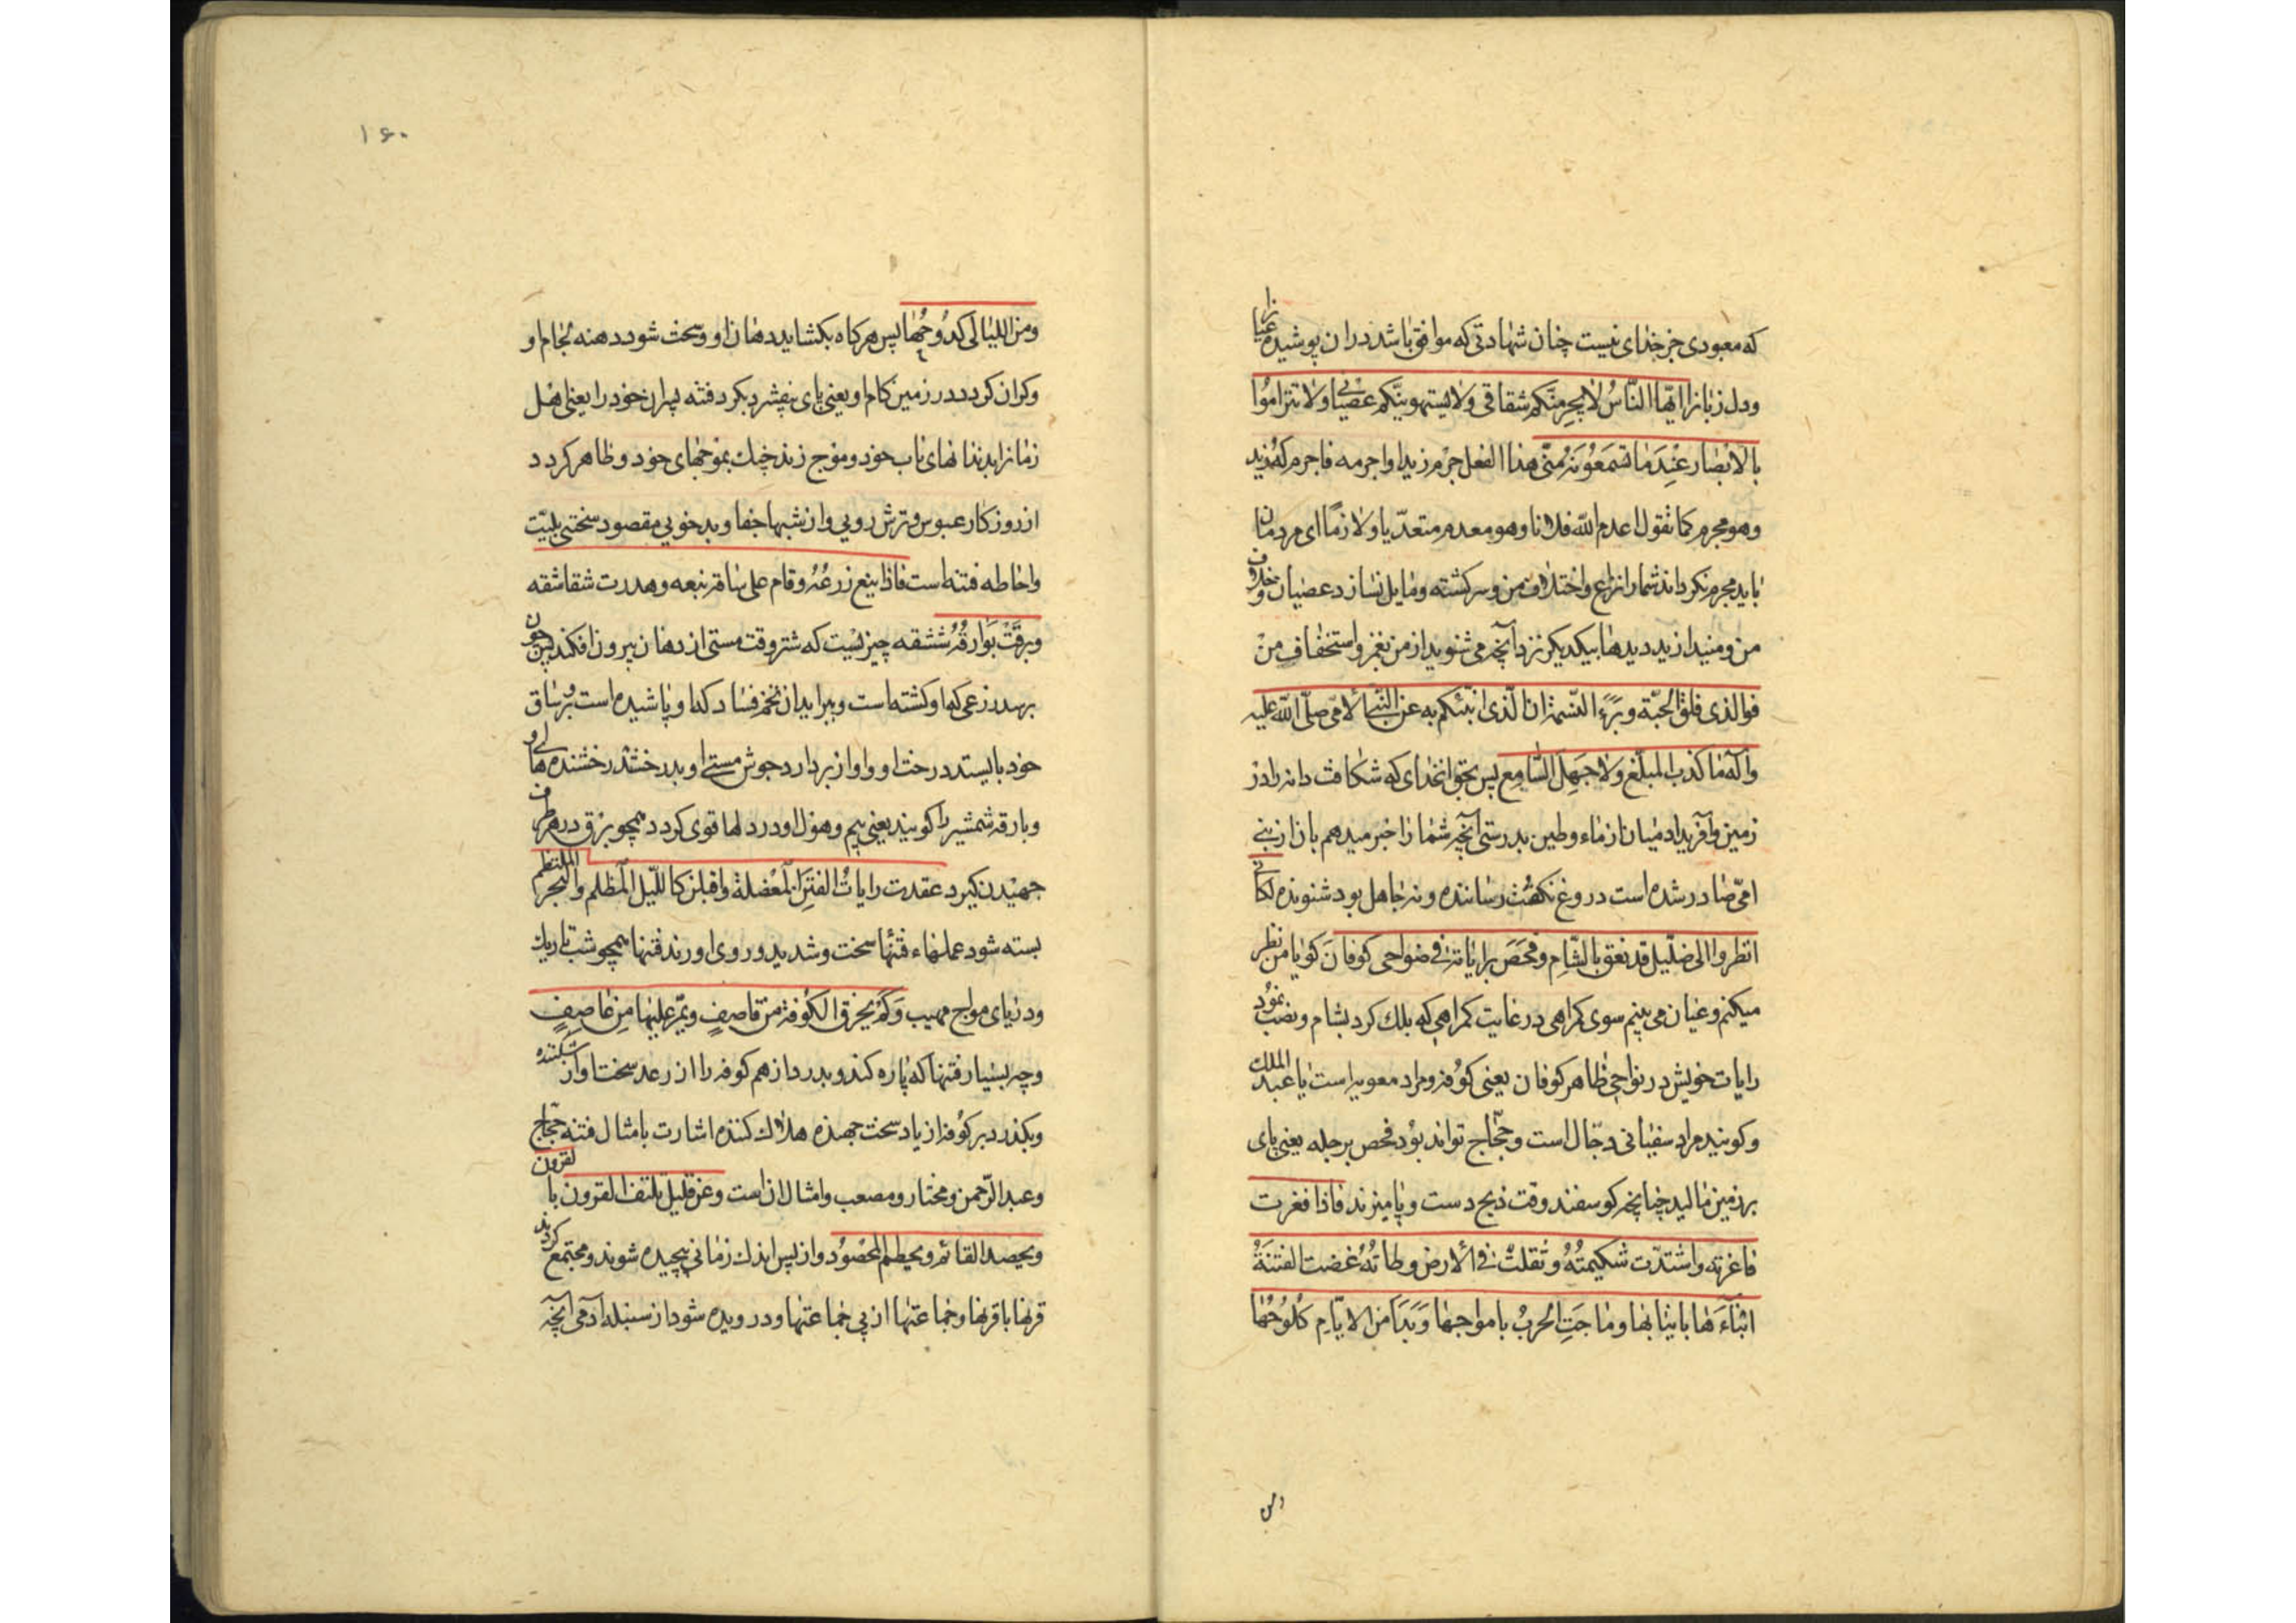 که معبودی جز خدای نیست چنان شهادتی که موافق باشد در ان پوشیده عیانرا
ودل زبانرا ایّها النّاسُ لا یجرمنّکم شقاقی ولا یستهوینّکم عصیانی ولا تتراموُا
بالابصار عِنْدَ ما تسمعُونهُ منّی هذا الفعل جرم زیدا واجرمه فاجرم که زید
وهو مجرم کما تقول اعدم اللّه فلانا وهو معدم متعدّیا ولازمًا ای مردمان
باید مجرم نکرداند شمارا نزاع واختلاف من وسرکشته ومایل نسازد عصیان وخلاف
من ومیندازید دیدها بیکدیکر نزد آنچه می شنوید از من بغمز واستخفاف منْ
فوالذی فلق الحبّة وبَرَءَ النسمة ان الّذی انبّئکم به عن النّبی الامّی صلّی اللّه علیه
وآله ما کذب المبلّغ ولا جَهِلَ السّامِع پس بحق انخدای که شکافت دانه را در
زمین وآفرید ادمیان از ماء وطین بدرستی آنچه شما را خبر میدهم بان از نبی
امّی صادر شده است دروغ نکفُت رساننده ونه جاهل بود شنونده لکانّی
انظروا الی ضلّیل قد نعق بالشّام وفحَصَ برایاتهِ فی ضواحی کوفان کویا من نظر
میکنم وعیان می بینم سوی کمراهی در غایت کمراهی که بانک کرد بشام ونصب نموُد
رایات خویش در نواحی ظاهر کوفان یعنی کوُفه ومراد معویه است یا عبد الملک
وکویند مراد سفیانی دجّال است وحجّاج تواند بوُد فحص برجله یعنی پای
بر زمین مالید چنانچه کوسفند وقت ذبح دست وپا میزند فاذا فغرت
فاغرته واشتدّت شکیمتُهُ وثقلتْ فی الارض وطاتُهُ عضت الفتنَةُ
ابْناءَها بانیابها وماجَتِ الحربُ بامواجها وَبَدَا من الایّامِ کُلُوحُها
ومن
۱۶۰
ومن اللیالی کدُوحُها پس هرکاه بکشاید دهان او وسخت شود دهنه لجام او
وکران کردد در زمین کام او یعنی پای بیفشرد بکزد فتنه پسران خود را یعنی اهل
زمانرا بدندانهای ناب خود وموج زند جنک بموجهای خود وظاهر کردد
از روزکار عبوس وترش رویی واز شبها جفا وبد خویی مقصود سختی بلیّت
واحاطه فتنه است فاذا ینع زرعُهُ وقام علی ساقه ینعه وهدرت شقاشقه
وبرقَتْ بَوارقُهُ شقشقه چیزیست که شتر وقت مستی از دهان بیرون افکند پس چون
برسد زرعی که او کشته است وببر اید ان تخم فساد که او پاشیده است وبر ساق
خود بایستد درخت او واواز بردارد جوش مستی او وبدرخشد رخشنده های او
وبارقه شمشیر را کویند یعنی بیم وهول او در دلها قوی کردد همچو برق در هر طرف
جهیدن کیرد عقدت رایاتُ الفتن المعْضلة واقبلن کاللّیل المظلم والبحر الملتطم
بسته شود عملهاء فتنها سخت وشدید وروی اورند فتنها همچو شب تاریک
ودریای مواج مهیب وَکَمْ یخرق الکوُفة من قاصِفٍ ویمّر علیها مِن عاصِفٍ
وچه بسیار فتنها که پاره کند وبدرد از هم کوفه را از رعد سخت اواز شکننده
وبکذرد بر کوُفه از باد سخت جهنده هلاک کننده اشارت بامثال فتنه حجّاج
وعبد الرّحمن ومختار ومصعب وامثال ان است وعن قلیل یلتف القرون بالقرون
ویحصد القائم ویحطم المحصُود واز پس اندک زمانی پیچیده شوند ومجتمع کردند
قرنها با قرنها وجماعتها از پی جماعتها ودرویده شود از سنبله آدمی آنچه